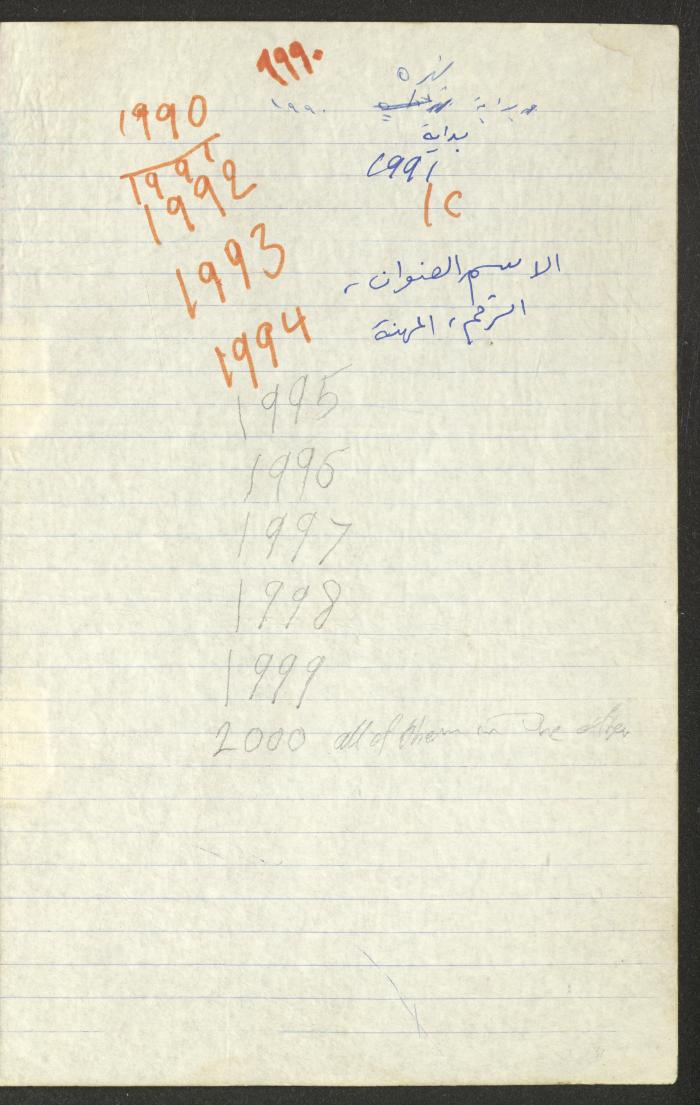 ١٩٩٠
1990
١٩٩٠
بداية
بداية
1991
1991
1992
1C
1993
الاسم العنوان،
الرقم، المهنة
1994
1995
1996
1997
1998
1999
2000 all of them in one